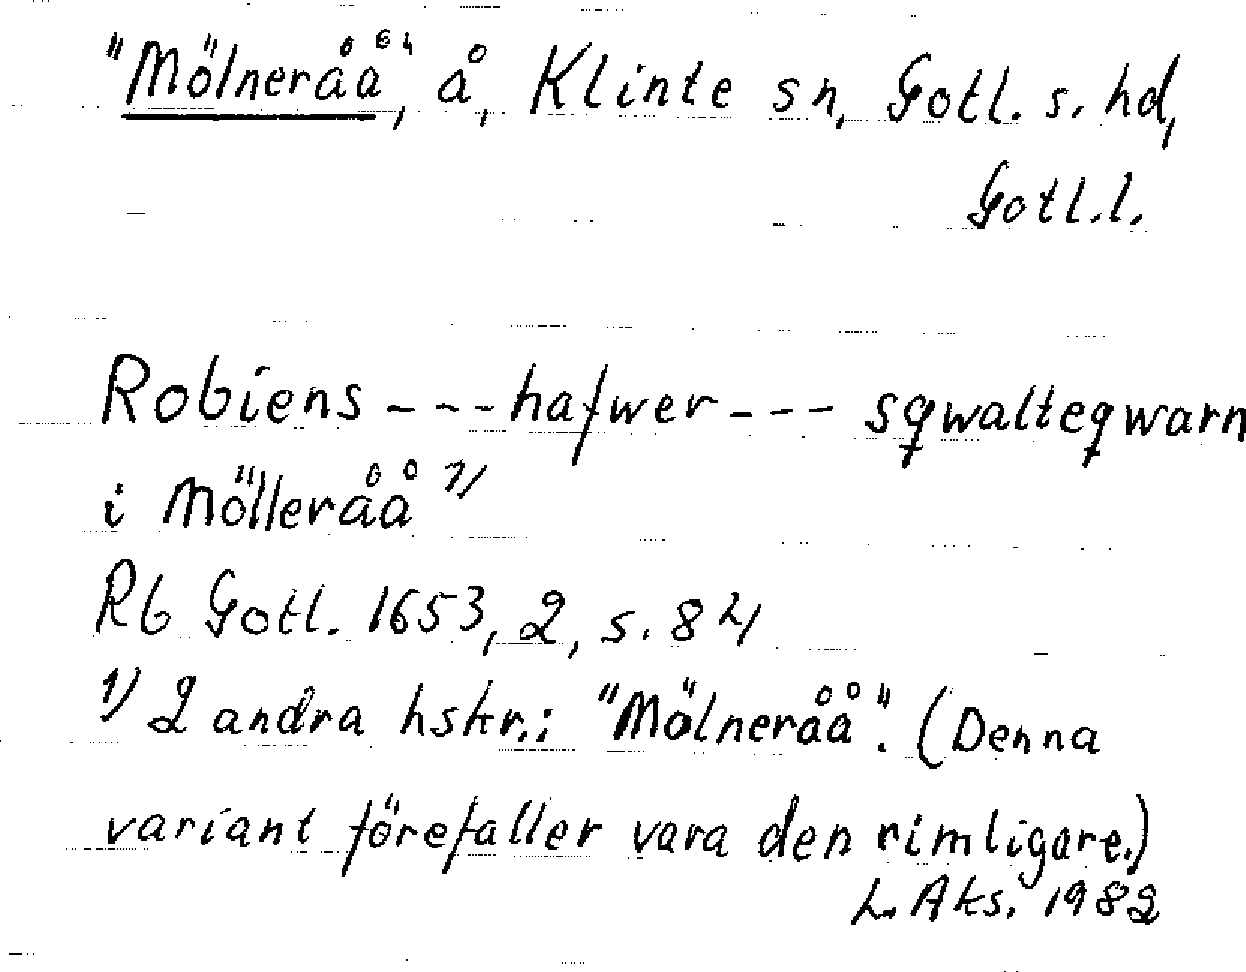 "Mölneråå", å, Klinte sn, Gotl. s. hd,
Gotl.l.
Robiens --- hafwer --- sqwalteqwarn
i Mölleråå 1)
Rb Gotl. 1653, 2, s. 84
1) 2 andra hskr.: "Mölneråå". (Denna
variant förefaller vara den rimligare.)
L. Aks. 1982